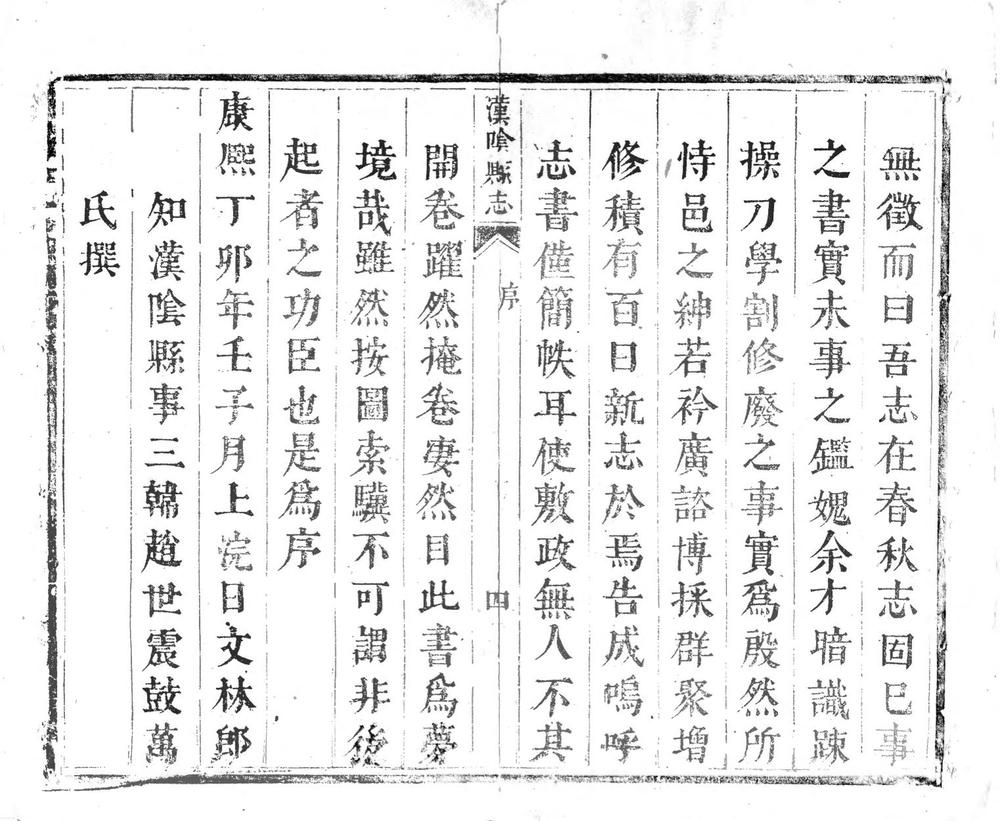 無徵而曰吾志在春秋志固已事
之書實未事之鑑媿余才暗識踈
操刀學割修廢之事實爲殷然所
恃邑之紳若衿廣諮博採群聚增
修積有百日新志於焉告成嗚呼
志書僅簡帙耳使敷政無人不其
漢陰縣志
序
四
開卷躍然掩卷悽然目此書爲夢
境哉雖然按圖索驥不可謂非後
起者之功臣也是爲序
康熙丁卯年壬子月上浣日文林郎
知漢陰縣事三韓趙世震鼓萬
氏撰